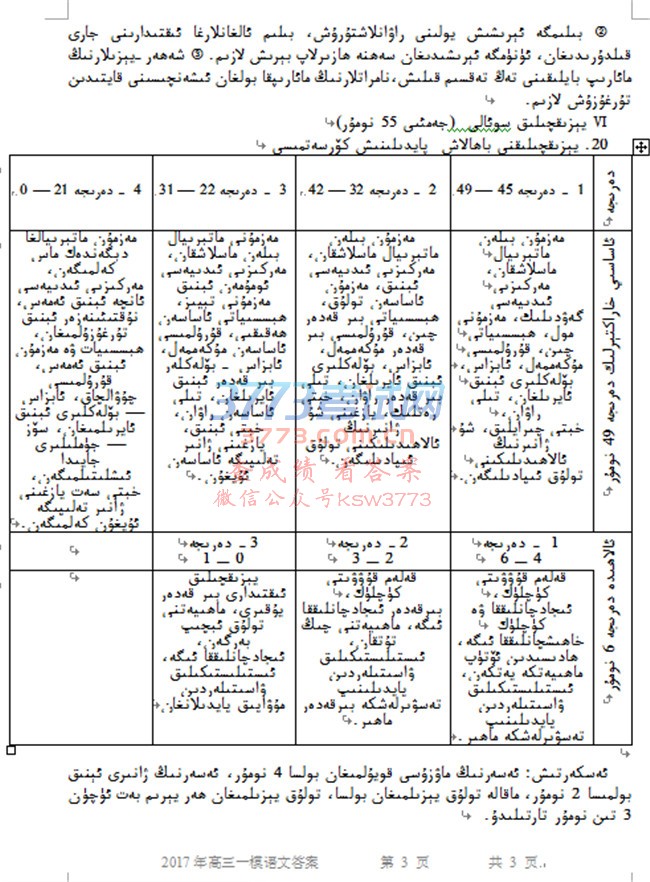 ② بىلىمگە ئېرىشىش يولىنى راۋانلاشتۇرۇش، بىلىم ئالغانلارغا ئىقتىدارىنى جارى
قىلدۇرىدىغان، ئۈنۈمگە ئېرىشىدىغان سەھنە ھازىرلاپ بېرىش لازىم. ③ شەھەر ـ يېزىلارنىڭ
مائارىپ بايلىقىنى تەڭ تەقسىم قىلىش، نامراتلارنىڭ مائارىپقا بولغان ئىشەنچىسىنى قايتىدىن
تۇرغۇزۇش لازىم.
VI يېزىقچىلىق سوئالى (جەمئىي 55 نومۇر)
20. يېزىقچىلىقنى باھالاش پايدىلىنىش كۆرسەتمىسى
دەرىجە
1 ـ دەرىجە 45 — 49.
2 ـ دەرىجە 32 — 42.
3 ـ دەرىجە 22 — 31.
4 ـ دەرىجە 21 — 0.
ئاساسىي خاراكتېرلىك دەرىجە 49 نومۇر
مەزمۇن بىلەن
ماتېرىيال
ماسلاشقان،
مەركىزىي
ئىدىيەسى
گەۋدىلىك، مەزمۇنى
مول، ھېسسىياتى
چىن، قۇرۇلمىسى
مۇكەممەل، ئابزاس،
بۆلەكلىرى ئېنىق
ئايرىلغان، تىلى
راۋان،
خېتى چىرايلىق، شۇ
ژانىرنىڭ
ئالاھىدىلىكىنى
تولۇق ئىپادىلىگەن.
مەزمۇن بىلەن
ماتېرىيال ماسلاشقان،
مەركىزىي ئىدىيەسى
ئېنىق، مەزمۇن
ئاساسەن تولۇق،
ھېسسىياتى بىر قەدەر
چىن، قۇرۇلمىسى بىر
قەدەر مۇكەممەل،
ئابزاس، بۆلەكلىرى
ئېنىق ئايرىلغان، تىلى
بىر قەدەر راۋان، خېتى
رەتلىك، يازغىنى شۇ
ژانىرنىڭ
ئالاھىدىلىكىنى تولۇق
ئىپادىلىگەن.
مەزمۇنى ماتېرىيال
بىلەن ماسلاشقان،
مەركىزىي ئىدىيەسى
ئومۇمەن ئېنىق
مەزمۇنى تېيىز،
ھېسسىياتى ئاساسەن
ھەقىقىي، قۇرۇلمىسى
ئاساسەن مۇكەممەل،
ئابزاس ـ بۆلەكلەر
بىر قەدەر ئېنىق
ئايرىلغان، تىلى
ئاساسەن راۋان،
خېتى ئېنىق،
يازغىنى ژانىر
تەلىپىگە ئاساسەن
ئۇيغۇن.
مەزمۇن ماتېرىيالغا
دېگەندەك ماس
كەلمىگەن،
مەركىزىي ئىدىيەسى
ئانچە ئېنىق ئەمەس،
نۇقتىئىنەزەر ئېنىق
تۇرغۇزۇلمىغان،
ھېسسىيات ۋە مەزمۇن
ئېنىق ئەمەس،
قۇرۇلمىسى
چۇۋالچاق، ئابزاس
— بۆلەكلىرى ئېنىق
ئايرىلمىغان، سۆز
— جۈملىلىرى
جايىدا
ئىشلىتىلمىگەن،
خېتى سەت يازغىنى
ژانىر تەلىپىگە
ئۇيغۇن كەلمىگەن.
ئالاھىدە دەرىجە 6 نومۇر
1 ـ دەرىجە
4 — 6
2 ـ دەرىجە
2 — 3
3 ـ دەرىجە
0 — 1
قەلەم قۇۋۋىتى
كۈچلۈك،
ئىجادچانلىققا ۋە
كۈچلۈك
خاھىشچانلىققا ئىگە،
ھادىسىدىن ئۆتۈپ
ماھىيەتكە يەتكەن،
ئىستىلىستىكىلىق
ۋاسىتىلەردىن
پايدىلىنىپ
تەسۋىرلەشكە ماھىر.
قەلەم قۇۋۋىتى
كۈچلۈك،
بىرقەدەر ئىجادچانلىققا
ئىگە، ماھىيەتنى چىڭ
تۇتقان،
ئىستىلىستىكىلىق
ۋاسىتىلەردىن
پايدىلىنىپ
تەسۋىرلەشكە بىرقەدەر
ماھىر.
يېزىقچىلىق
ئىقتىدارى بىر قەدەر
يۇقىرى، ماھىيەتنى
تولۇق ئېچىپ
بەرگەن،
ئىجادچانلىققا ئىگە،
ئىستىلىستىكىلىق
ۋاسىتىلەردىن
مۇۋاپىق پايدىلانغان
ئەسكەرتىش: ئەسەرنىڭ ماۋزۇسى قويۇلمىغان بولسا 4 نومۇر، ئەسەرنىڭ ژانىرى ئېنىق
بولمىسا 2 نومۇر، ماقالە تولۇق يېزىلمىغان بولسا، تولۇق يېزىلمىغان ھەر يېرىم بەت ئۈچۈن
3 تىن نومۇر تارتىلىدۇ.
3773考试网
3773.com.cn
查成绩 看答案
微信公众号ksw3773
2017年高三一模语文答案 第 3 页 共 3 页.